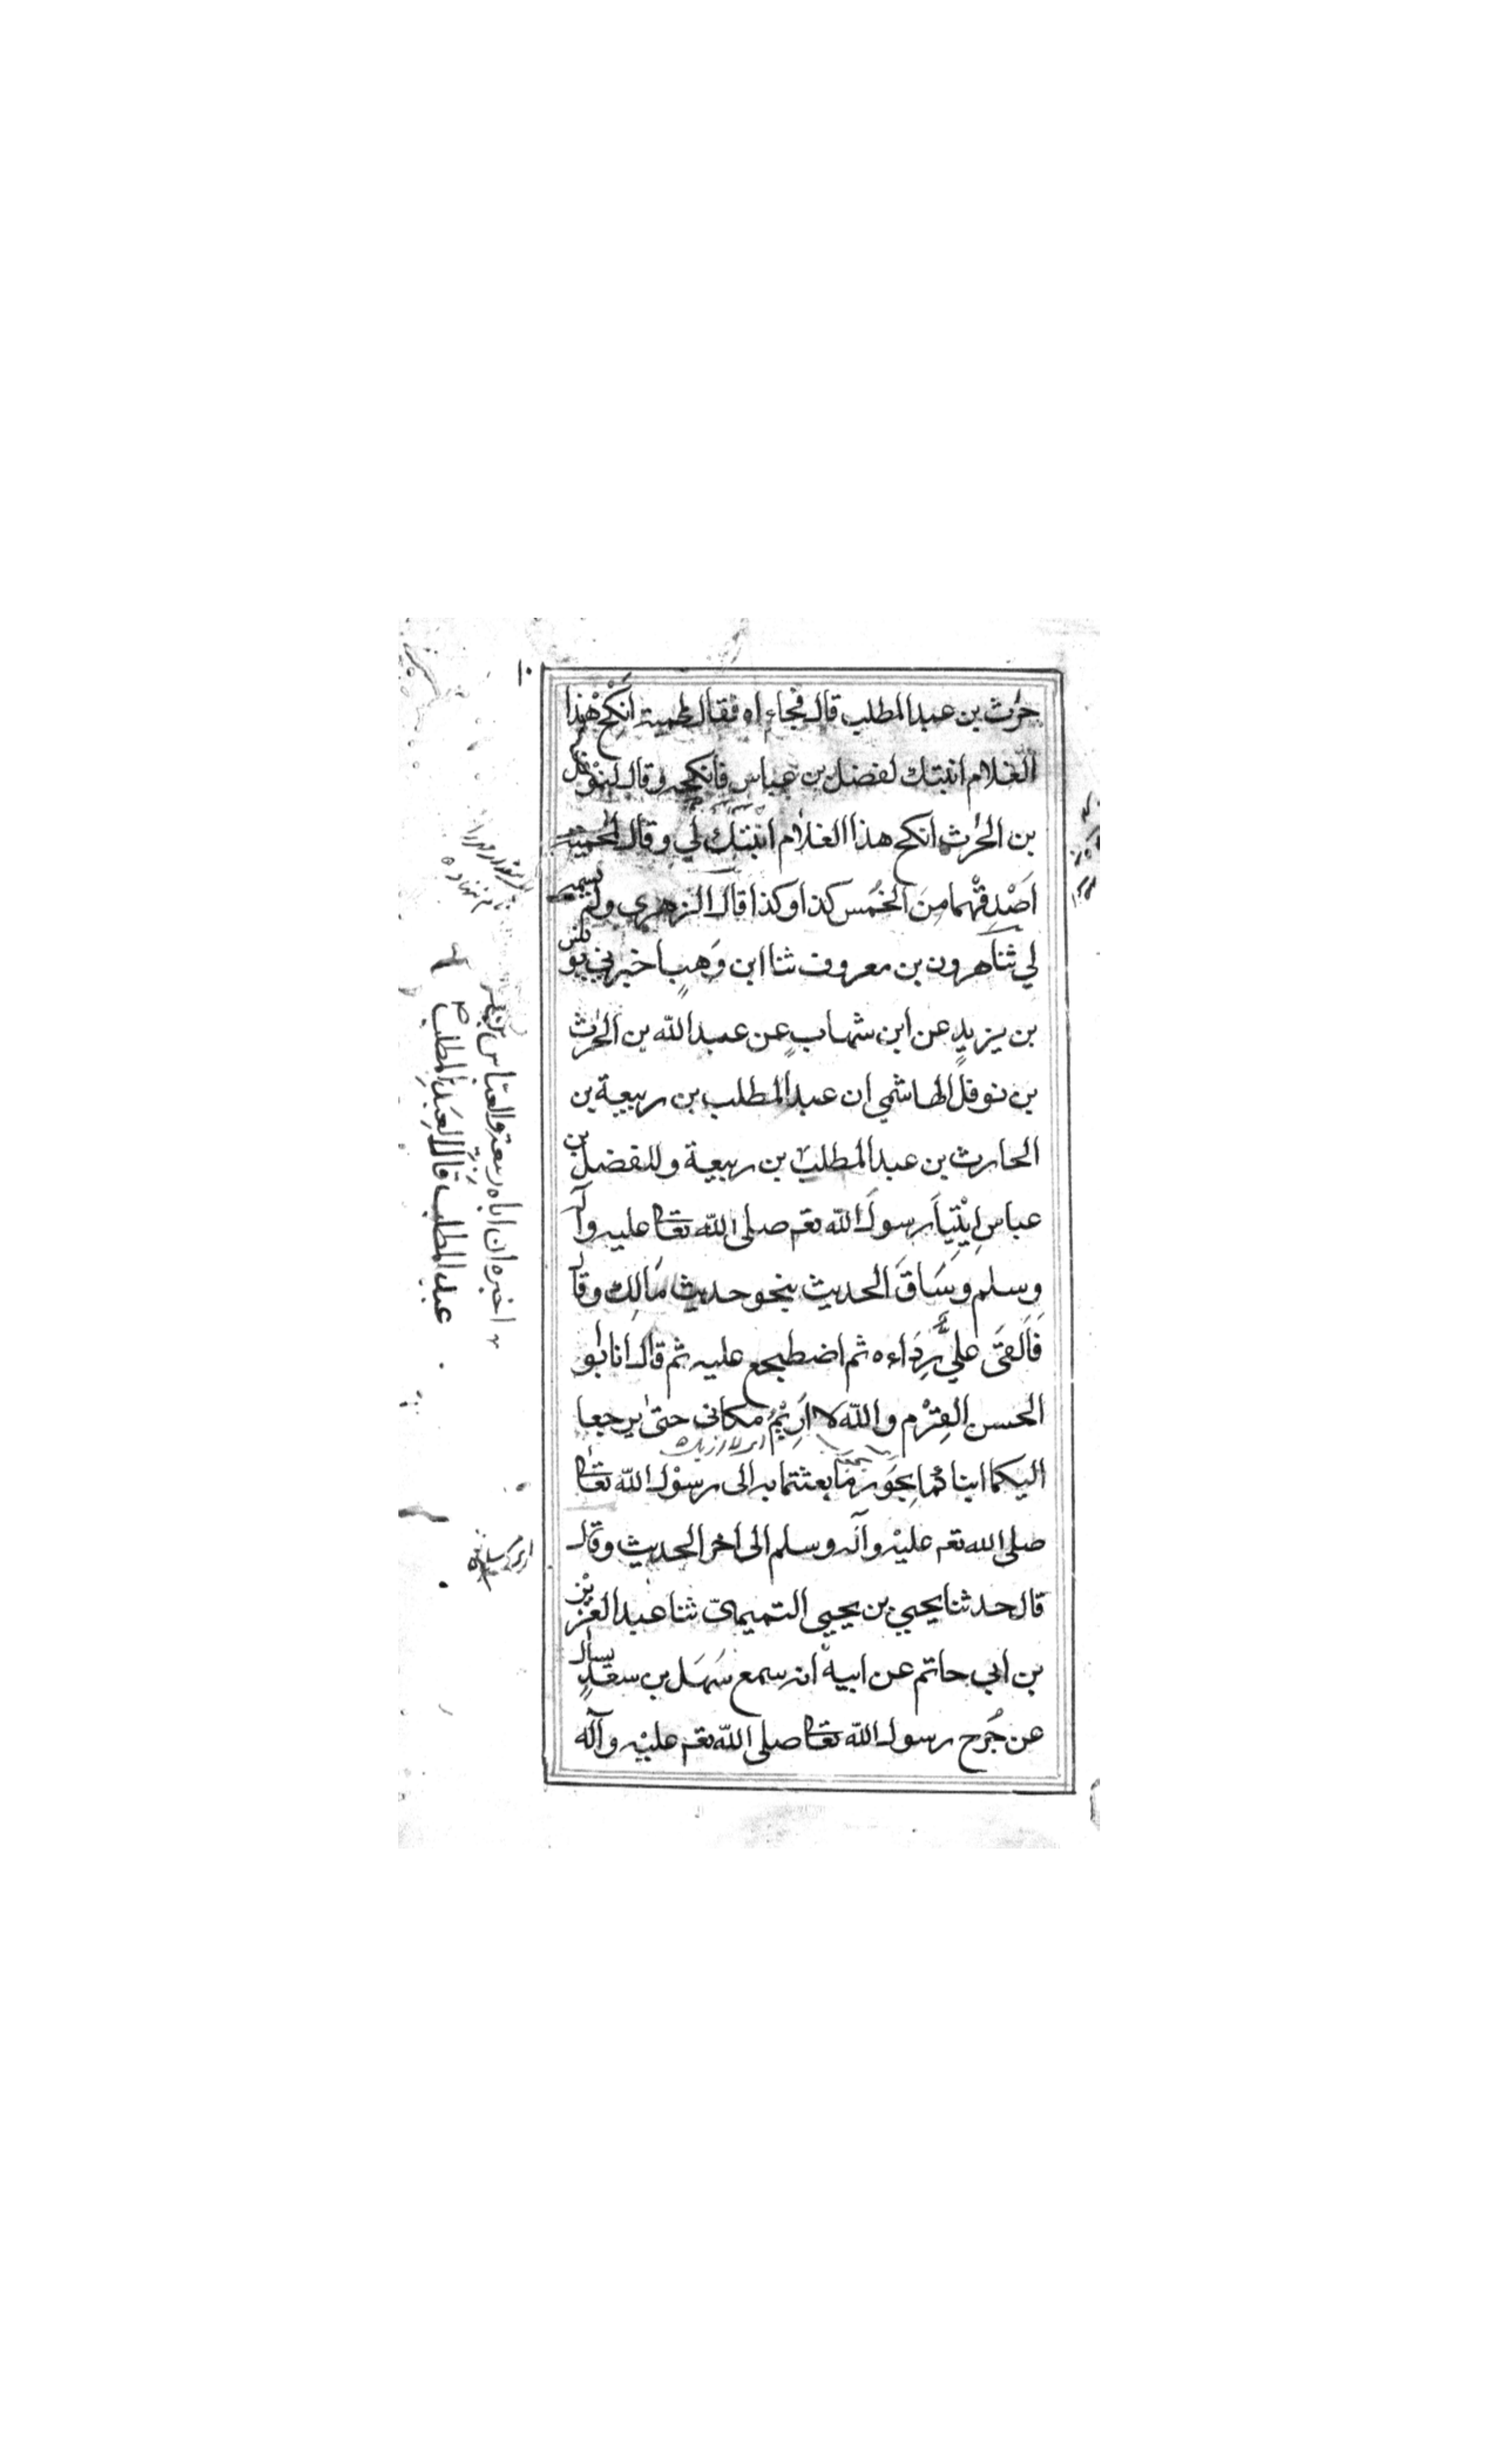 ١٠
حٰرث بن عبدالمطلب قال فجاءاه فقال لمحمية اَنكح هٰذا
الغلام ابنتك لفضل بن عباس فانكحه وقال لنوفل
بن الحٰرث انكح هذا الغلام ابنتك لي وقال لمحمية
اَصْدِقْهما مِنَ الخُمس كذا وكذا قال الزهري ولم يسميه
لي ثنا هرون بن معروف ثنا ابن وَهبٍ اخبرني يونس
بن يزيدٍ عن ابن شهابٍ عن عبدالله بن الحٰرث
بن نوفل الهاشمي ان عبدالمطلب بن ربيعة بن
الحارث بن عبدالمطلب بن ربيعة وللفضل بن
عباسِ اِيْتِيَا رسولَ الله تعـ صلى الله تعالى عليه وآله
وسلم وَسَاقَ الحديث بنحو حديث مَالِك وقال
فَاَلقَى عليٌّ رِدَاءه ثم اضطجع عليه ثم قال اَنا ابو
الحسن القِرْم والله لا اَرِيْمُ مكاني حتىٰ يرجعا
اليكما ابناكما بِحَورِ مَا بعثتما به الى رسوْل الله تعالى
صلى الله تعـ عليْه وآله وسلم الى اخر الحديث وقال
قال حدثنا يحيي بن يحيى التميمى ثنا عبدالعزيْز
بن ابي حاتم عن ابيه انه سمع سَهَل بن سعدٍ يسأل
عن جُرح رسول الله تعالى صلى الله تعـ عليْه وآله
اخبره ان اباه ربيعة والعباس بن
عبدالمطلب قال لِعَبْدِ المطلب